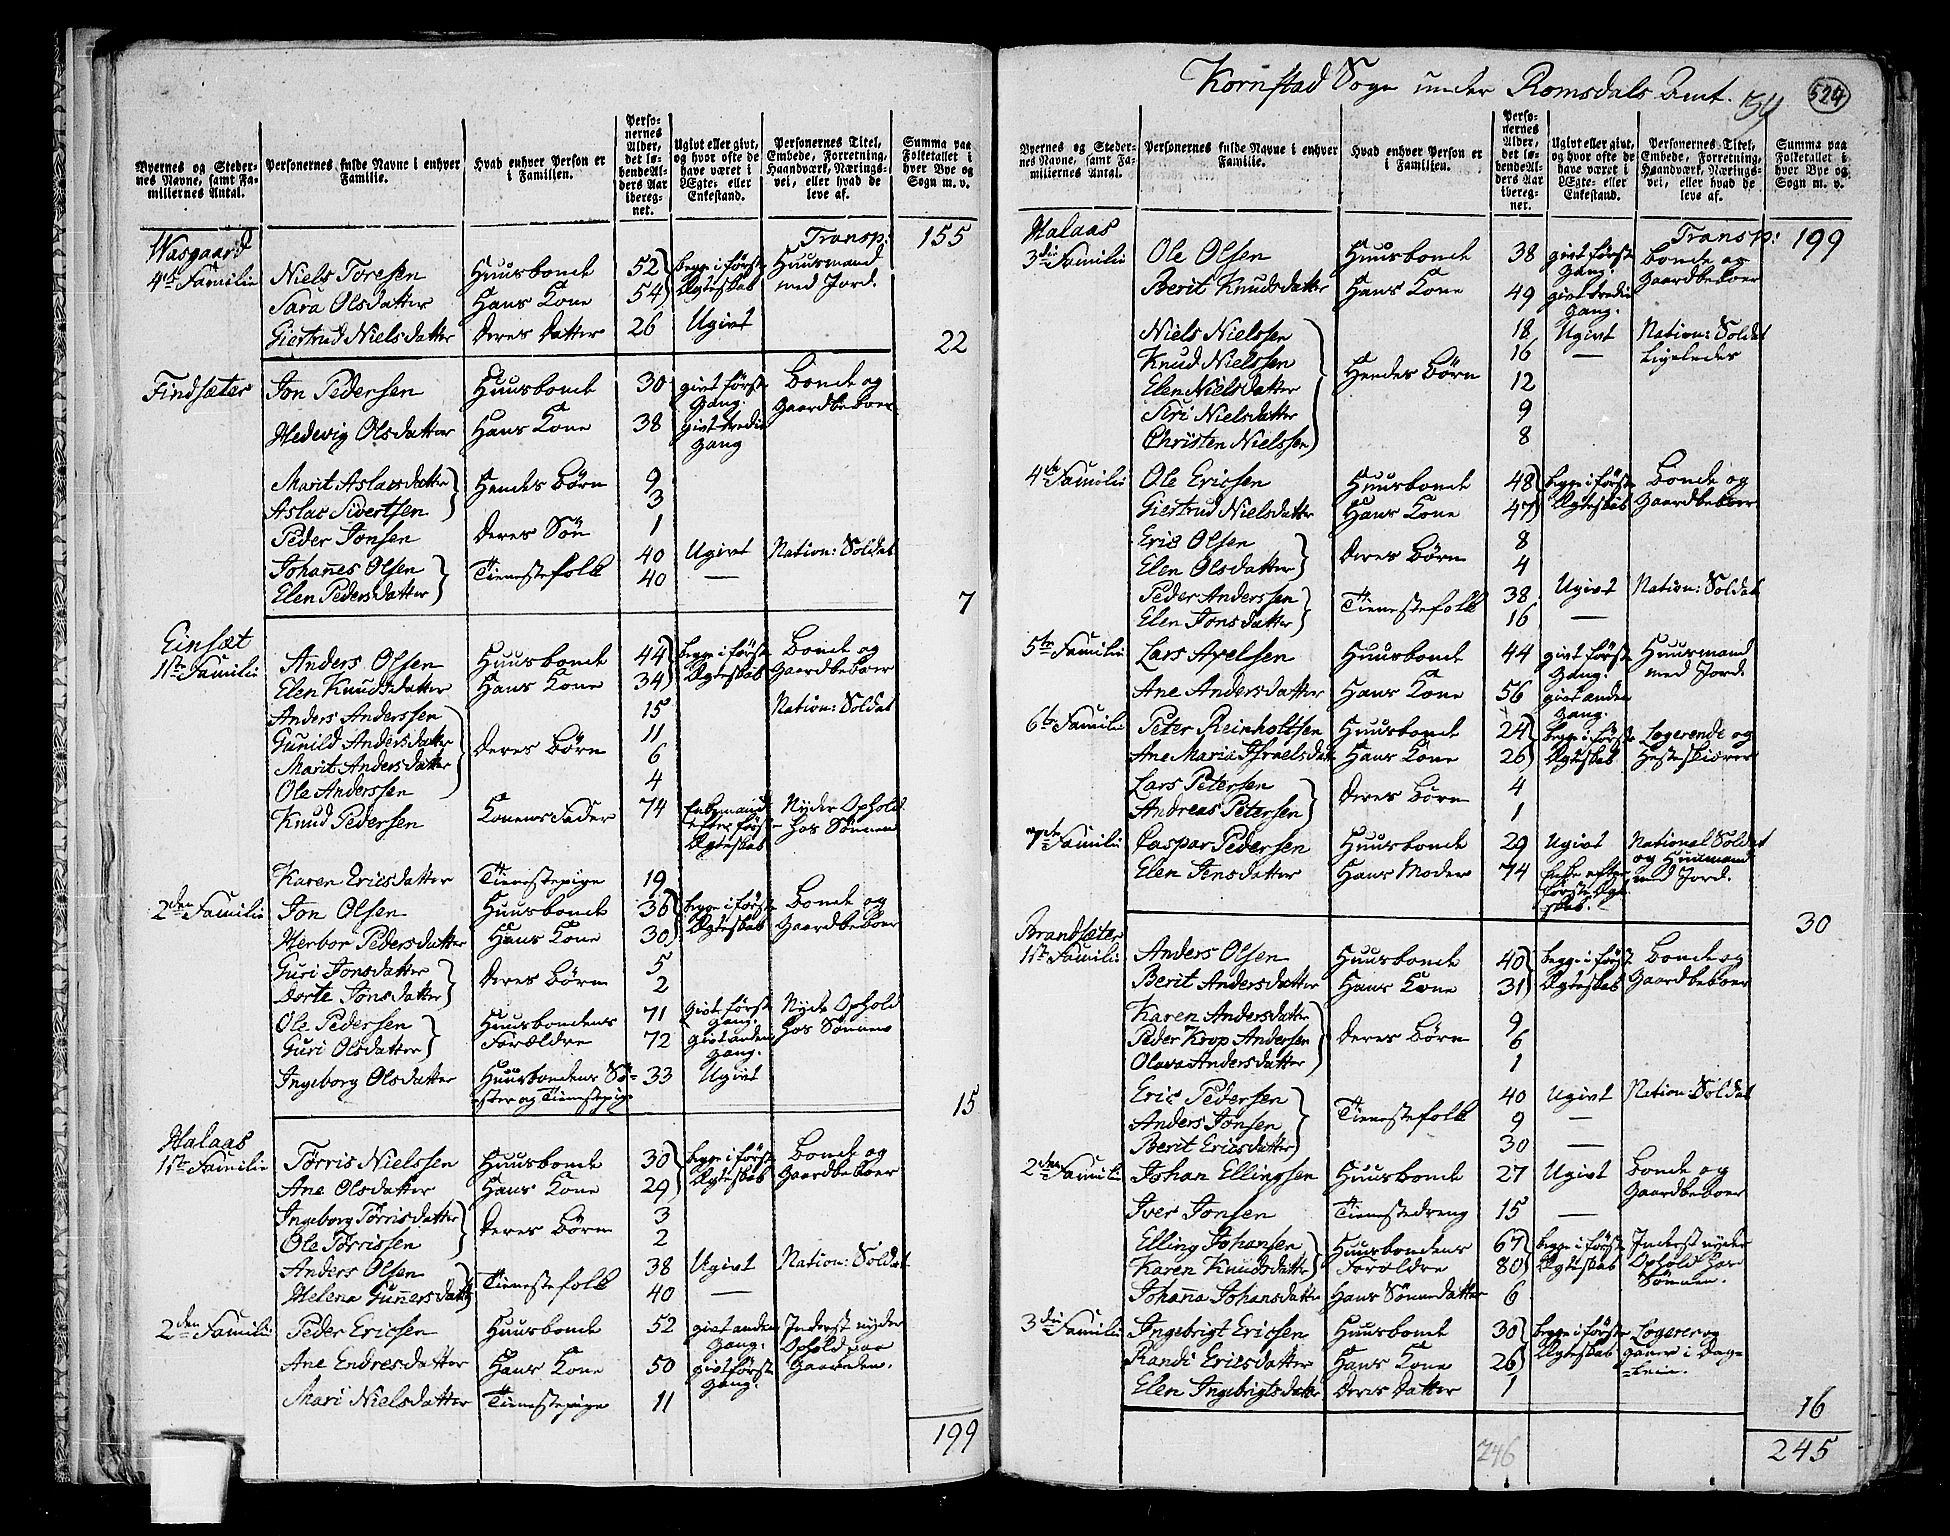 Kornstad Sogn under Romsdals Amt.
524
Byernes og Stedernes Navne, samt Familiernes Antal.
Personernes fulde Navne i enhver Familie.
Hvad enhver Person er i Familien.
Personernes Alder, det løbendeAlders Aar iberegnet.
Ugivt eller givt, og hvor ofte de have været i Ægte- eller Enkestand.
Personernes Titel, Embede, Forretning, Haandværk, Næringsvei, eller hvad de leve af.
Summa paa Folketallet i hver Bye og Sogn m. v.
Wasgaard Transp: 155
4de Familie Niels Toresen Huusbonde 52 begge i første Huusmand
Sara Olsdatter Hans Kone 54 Ægteskab med Jord.
Giertrud Nielsdatter deres datter 26 Ugivt
22
Findsæter Jon Pedersen Huusbonde 30 givt første Gang. Bonde og Gaardbeboer
Hedevig Olsdatter Hans Kone 38 givt tredie Gang
Marit Aslacsdatter Hendes Børn 9
Aslac Sivertsen 3
Peder Jonsen deres Søn 1
Johannes Olsen Tienestefolk 40 Ugivt Nation: Soldat
Elen Pedersdatter 40 —
7
Einsæt
1ste Familie Anders Olsen Huusbonde 44 begge i første Bonde og
Elen Knudsdatter Hans Kone 34 Ægteskab Gaardbeboer
Anders Anderssen 15 Nation: Soldat
Gunild Andersdatter deres Børn 11
Marit Andersdatter 6
Ole Anderssen 4
Knud Pedersen Konens Fader 74 Enkemand efter først Ægteskab Nyder Ophold hos Sønnen
Karen Ericsdatter Tienestepige 19
2den Familie Jon Olsen Huusbonde 36 begge i første Bonde og
Herbor Pedersdatter Hans Kone 30 Ægteskab Gaardbeboer
Guri Jonsdatter deres Børn 5
Dorte Jonsdatter 2
Ole Pedersen Huusbondens 71 givt første Gang. Nyde Ophold
Guri Olsdatter Forældre 72 givt anden Gang. hos Sønnen
Ingeborg Olsdatter Huusbondens Søster og Tienestepige 33 Ugivt
15
Halaas
1ste Familie Tørris Nielssen Huusbonde 30 begge i første Bonde og
Ane Olsdatter Hans Kone 29 Ægteskab Gaardbeboer
Ingeborg Tørrisdatter deres Børn 3
Ole Tørrissen 2
Anders Olsen Tienestefolk 38 Ugivt Nation: Soldat
Helena Gunnersdatter 40 —
2den Familie Peder Ericsen Huusbonde 52 givt anden Gang. Inderst nyder Ophold paa
Ane Endresdatter Hans Kone 50 givt første Gang. Gaarden.
Mari Nielsdatter Tienestepige 11
199
Byernes og Stedernes Navne, samt Familiernes Antal.
Personernes fulde Navne i enhver Familie.
Hvad enhver Person er i Familien.
Personernes Alder, det løbendeAlders Aar iberegnet.
Ugivt eller givt, og hvor ofte de have været i Ægte- eller Enkestand.
Personernes Titel, Embede, Forretning, Haandværk, Næringsvei, eller hvad de leve af.
Summa paa Folketallet i hver Bye og Sogn m. v.
Halaas Transp: 199
3die Familie Ole Olsen Huusbonde 38 givt første Gang. Bonde og
Berit Knudsdatter Hans Kone 49 givt tredie Gang. Gaardbeboer
Niels Nielssen 18 Ugivt Nation: Soldat
Knud Nielssen 16 — Ligeledes
Elen Nielsdatter Hendes Børn 12
Siri Nielsdatter 9
Christen Nielssen 8
4de Familie Ole Ericsen Huusbonde 48 begge i første Bonde og
Giertrud Nielsdatter Hans Kone 47 Ægteskab Gaardbeboer
Eric Olsen deres Børn 8
Elen Olsdatter 4
Peder Anderssen Tienestefolk 38 Ugivt Nation: Soldat
Elen Jonsdatter 16 —
5te Familie Lars Axelsen Huusbonde 44 givt første Gang. Huusmand
Ane Andersdatter Hans Kone 56 givt anden Gang. med Jord.
6te Familie Peter Reinholtsen Huusbonde 24 begge i første Logerende og
Ane Maria Israelsdatt Hans Kone 26 Ægteskab Hesteskiærer
Lars Petersen deres Børn 4
Andreas Petersen 1
7de Familie Caspar Pedersen Huusbonde 29 Ugivt National Soldat og Huusmand
Elen Jensdatter Hans Moder 74 Enke efter første Ægteskab. med Jord.
30
Brandsæter
1ste Familie Anders Olsen Huusbonde 40 begge i først Bonde og
Berit Andersdatter Hans Kone 31 Ægteskab Gaardbeboer
Karen Andersdatter 9
Peder Koop Andersen deres Børn 6
Olava Andersdatter 1
Eric Pedersen 40 Ugivt Nation: Soldat
Anders Jonsen Tienestefolk 9 —
Berit Ericsdatter 30 —
2den Familie Johan Ellingsen Huusbonde 27 Ugivt Bonde og Gaardbeboer
Iver Jonsen Tienestedreng 15 —
Elling Johansen Huusbondens 67 begge i første Inderst nyder
Karen Knudsdatter Forældre 80 Ægteskab Ophold hos Sønnen.
Johanna Johansdatter Hans Sønnedatter 6
3die Familie Ingebrigt Ericsen Huusbonde 30 begge i første Logerer og
Randi Ericsdatter Hans Kone 26 Ægteskab gaaer i Dagleie.
Elen Ingebrigtsdatter deres datter 1
16
246
245